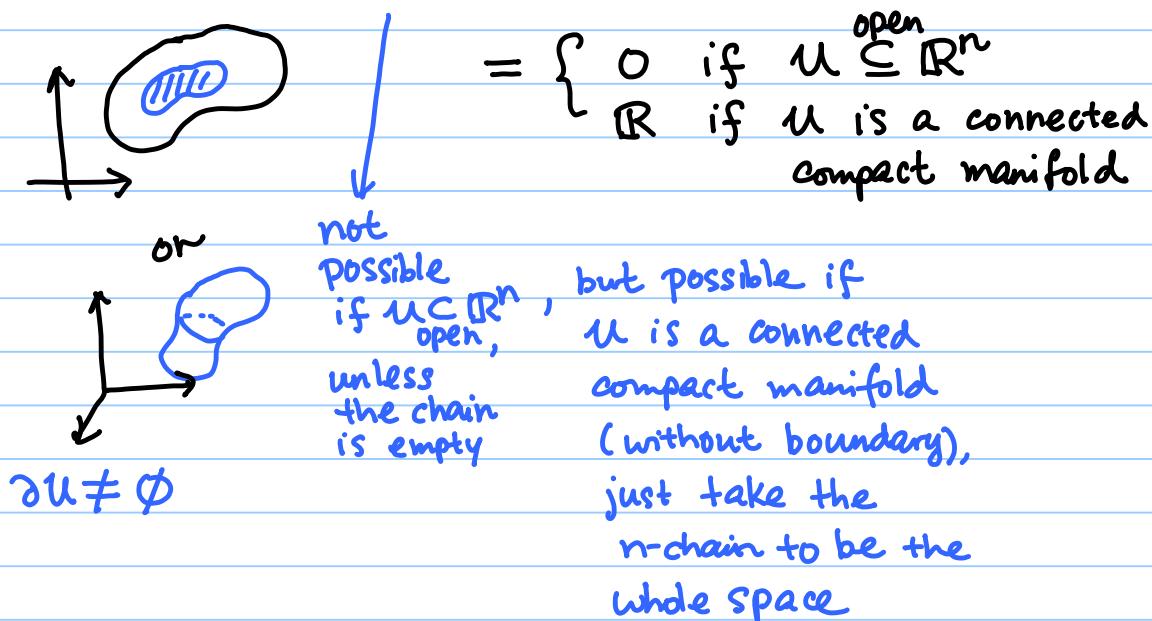 = { 0 if U ⊆ open ℝⁿ
ℝ if U is a connected
compact manifold
or
∂U ≠ ∅
not
possible
if U ⊂ ℝⁿ,
open,
unless
the chain
is empty
but possible if
U is a connected
compact manifold
(without boundary),
just take the
n-chain to be the
whole space